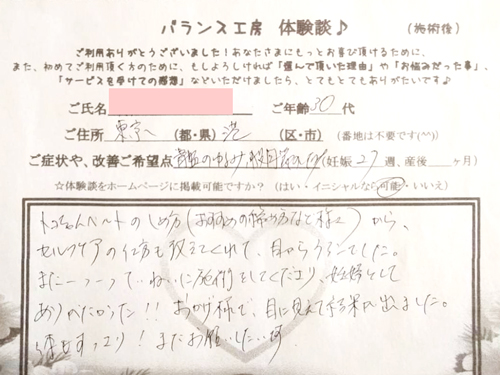 バランス工房 体験談♪ (施術後)
ご利用ありがとうございました!あなたさまにもっとお喜び頂けるために、
また、初めてご利用頂く方のために、もしよろしければ「選んで頂いた理由」や「お悩みだった事」、
「サービスを受けての感想」などいただけましたら、とてもとてもありがたいです♪
ご氏名 ご年齢 30 代
ご住所 東京 (都・県) 港 (区・市) (番地は不要です(^^))
ご症状や、改善ご希望点 骨盤のゆがみ (妊娠 27 週、産後 ヶ月)
☆体験談をホームページに掲載可能ですか? (はい・イニシャルなら可能・いいえ)
トコちゃんベルトのしめ方(おすすめの締め方など様々)から、
セルフケアの仕方も教えてくれて、目からうろこでした。
また一つ一つていねいに施術をしてくださり、妊婦として
ありがたかった!! おかげ様で、目に見えて結果が出ました。
すっきり! またお願いしたいです